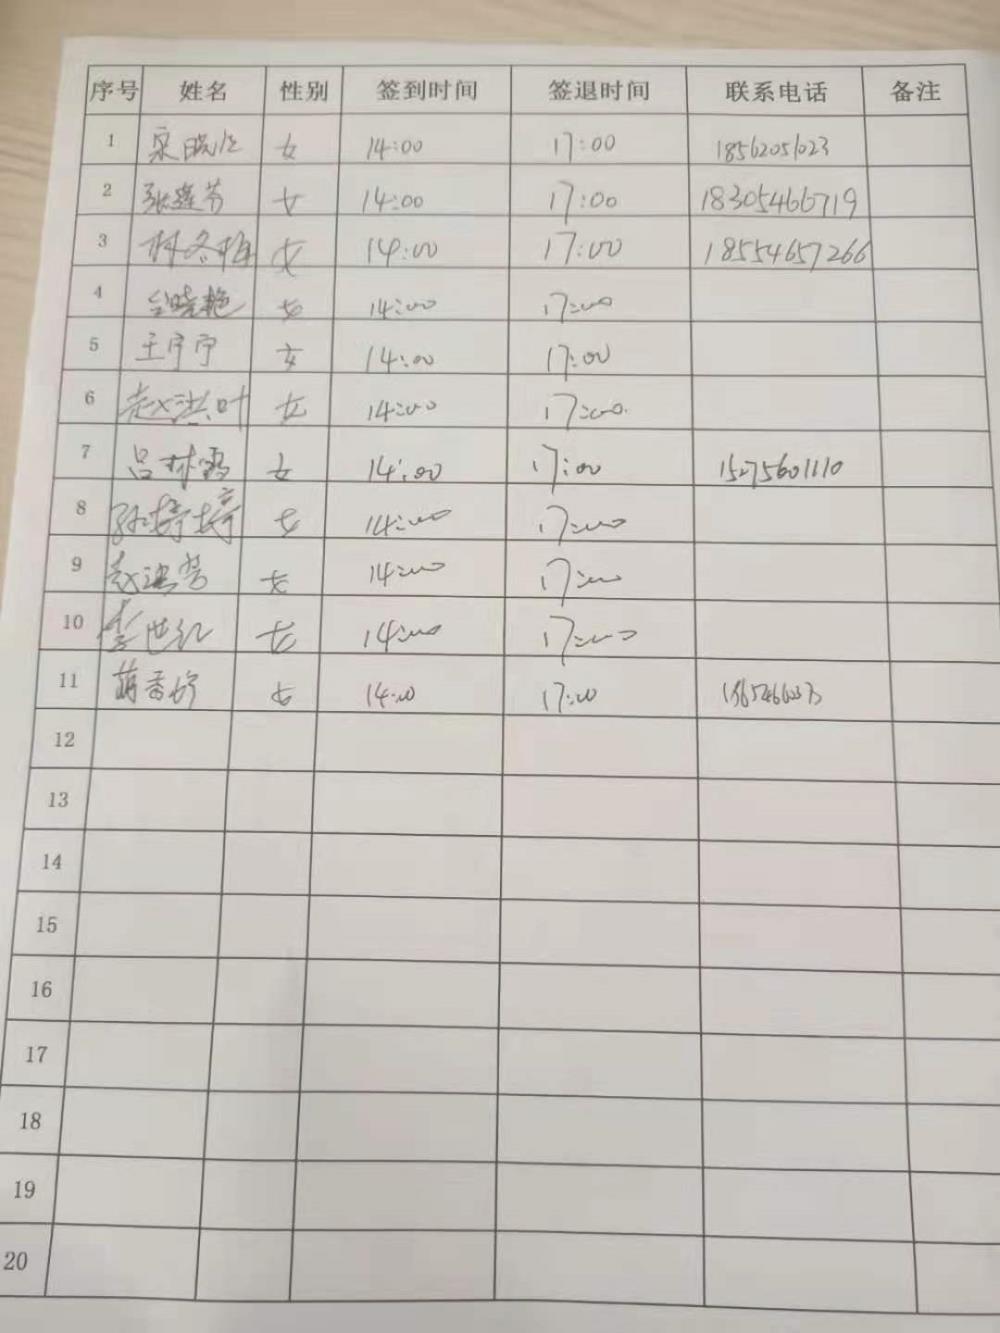 序号 姓名 性别 签到时间 签退时间 联系电话 备注
1 女 14:00 17:00 18562051023
2 张莲芳 女 14:00 17:00 18305466719
3 林冬梅 女 14:00 17:00 18554657266
4 女 14:00 17:00
5 王宁宁 女 14:00 17:00
6 赵洪叶 女 14:00 17:00
7 吕林雪 女 14:00 17:00 15275601110
8 孙婷婷 女 14:00 17:00
9 女 14:00 17:00
10 李世红 女 14:00 17:00
11 女 14:00 17:00
12
13
14
15
16
17
18
19
20